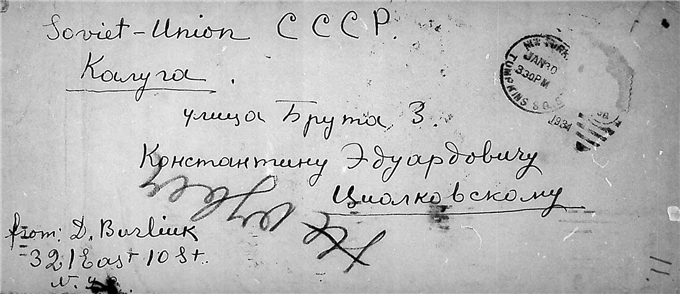 Soviet-Union СССР.
Калуга.
улица Брута 3.
Константину Эдуардовичу
Циолковскому
from: D. Burliuk
321 East 10 St.
N.Y.C.
NEW YORK,
JAN 30
330 PM
TOMPKINS SQ.
1934